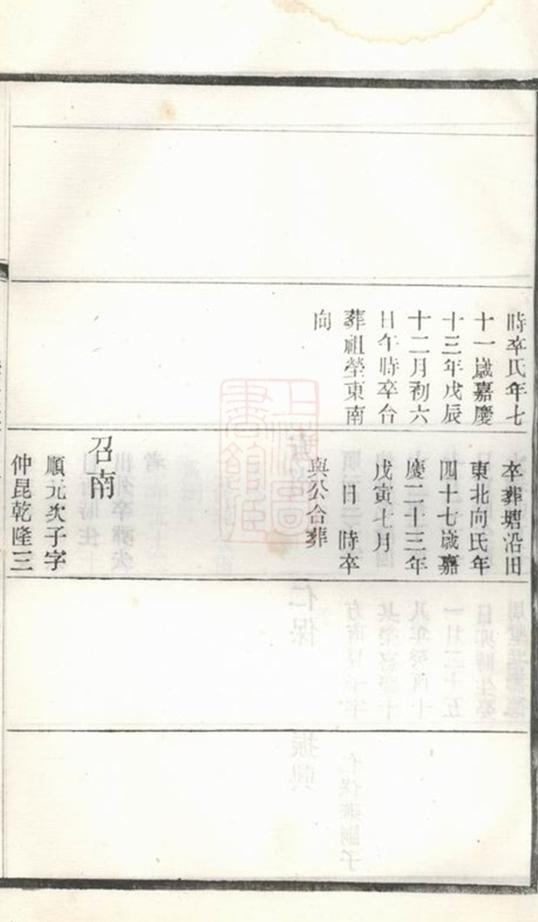 時卒氏年七
十一歲嘉慶
十三年戊辰
十二月初六
日午時卒合
葬祖塋東南
向
卒葬塘沿田
東北向氏年
四十七歲嘉
慶二十三年
戊寅七月
日 時卒
與公合葬
召南
順元次子字
仲昆乾隆三